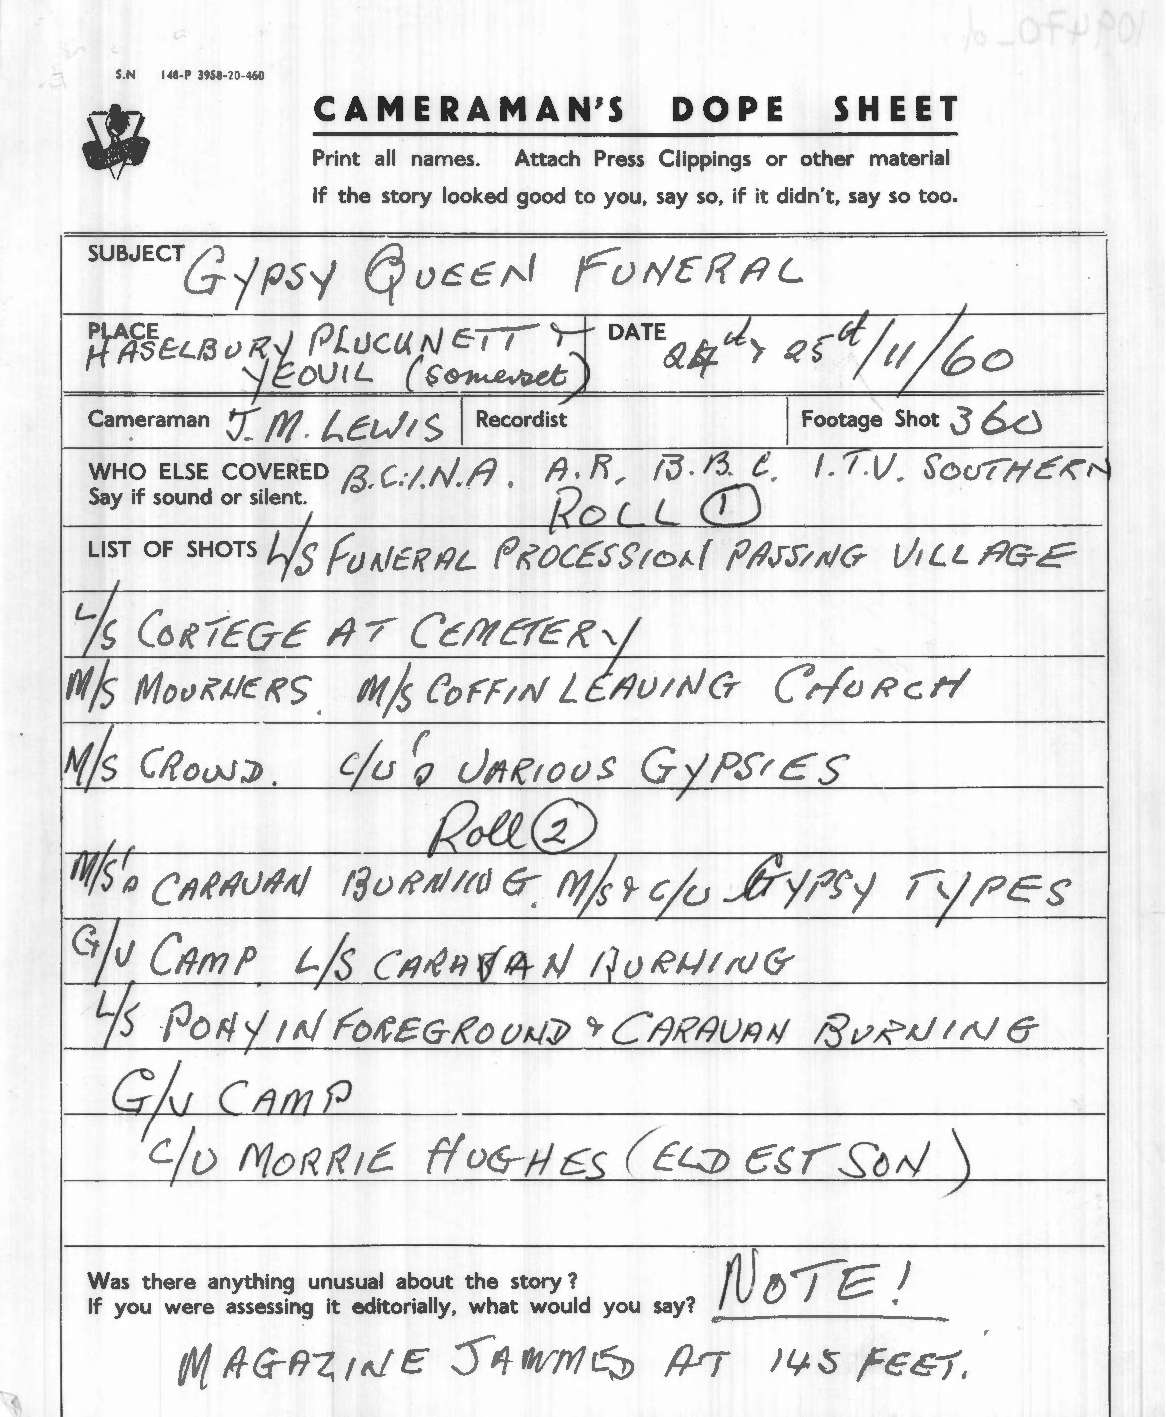 S.N 148-P 3958-20-460
CAMERAMAN'S DOPE SHEET
Print all names. Attach Press Clippings or other material
If the story looked good to you, say so, if it didn't, say so too.
SUBJECT GYPSY QUEEN FUNERAL
PLACE HASELBURY PLUCKNETT &
YEOVIL (Somerset)
DATE 24th & 25th/11/60
Cameraman J.M. LEWIS Recordist Footage Shot 360
WHO ELSE COVERED B.C.I.N.A. A.R. B.B.C. I.T.V. SOUTHERN
Say if sound or silent.
ROLL 1
LIST OF SHOTS L/S FUNERAL PROCESSION PASSING VILLAGE
L/S CORTEGE AT CEMETERY
M/S MOURNERS. M/S COFFIN LEAVING CHURCH
M/S CROWD. C/U's VARIOUS GYPSIES
Roll 2
M/S's CARAVAN BURNING. M/S & C/U GYPSY TYPES
G/V CAMP. L/S CARAVAN BURNING
L/S PONY IN FOREGROUND & CARAVAN BURNING
G/V CAMP
C/U MORRIE HUGHES (ELDEST SON)
Was there anything unusual about the story?
If you were assessing it editorially, what would you say?
NOTE!
MAGAZINE JAMMED AT 145 FEET.